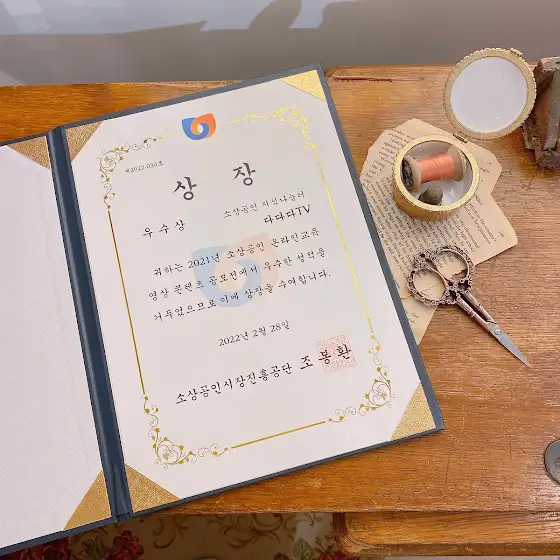 제2022-030호
상 장
소상공인 지식나눔터
우수상 다다다TV
귀하는 2021년 소상공인 온라인교육
영상 콘텐츠 공모전에서 우수한 성적을
거두었으므로 이에 상장을 수여합니다.
2022년 2월 28일
소상공인시장진흥공단 조 봉 환